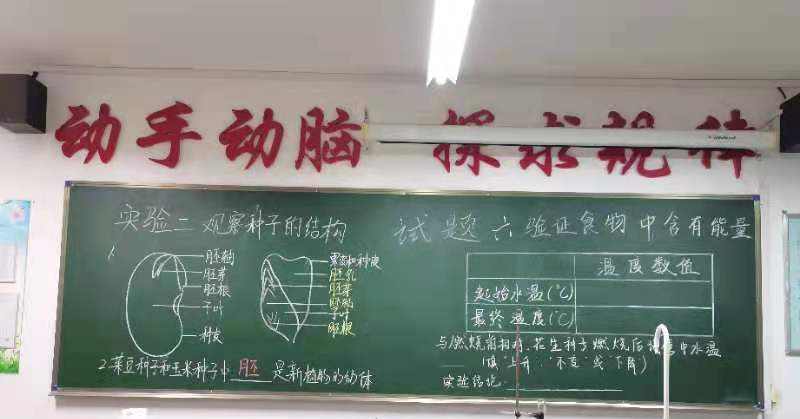 动手动脑 探求规律
实验二 观察种子的结构
1.
胚轴
胚芽
胚根
子叶
种皮
果皮和种皮
胚乳
胚芽
胚轴
子叶
胚根
2.菜豆种子和玉米种子中 胚 是新植物的幼体
试题六 验证食物中含有能量
温度数值
起始水温(℃)
最终温度(℃)
花生种子燃烧后 中水温
(填"上升""不变"或"下降")
实验结论: